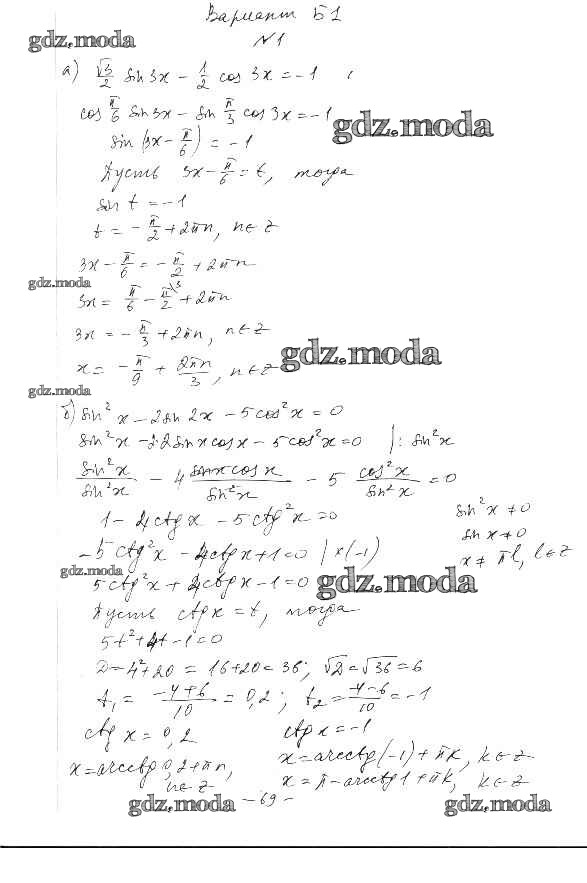 Вариант Б1
gdz.moda
№1
а) √3/2 sin 3x − 1/2 cos 3x = −1
cos π/6 sin 3x − sin π/3 cos 3x = −1
gdz.moda
sin (3x − π/6) = −1
Пусть 3x − π/6 = t, тогда
sin t = −1
t = −π/2 + 2πn, n∈Z
3x − π/6 = −π/2 + 2πn
gdz.moda
3x = π/6 − π/2 \3 + 2πn
3x = −π/3 + 2πn, n∈Z
gdz.moda
x = −π/9 + 2πn/3, n∈Z
gdz.moda
б) sin² x − 2sin 2x − 5cos² x = 0
sin² x − 2·2sinxcosx − 5cos²x = 0 |: sin²x
sin²x/sin²x − 4 sinxcosx/sin²x − 5 cos²x/sin²x = 0
1 − 4ctgx − 5ctg²x = 0 sin²x ≠ 0
sinx ≠ 0
−5ctg²x − 4ctgx + 1 = 0 | ×(−1) x ≠ πl, l∈Z
gdz.moda
5ctg²x + 4ctgx − 1 = 0
gdz.moda
Пусть ctgx = t, тогда
5t² + 4t − 1 = 0
D = 4² + 20 = 16 + 20 = 36; √D = √36 = 6
t₁ = −4+6/10 = 0,2; t₂ = −4−6/10 = −1
ctg x = 0,2 ctgx = −1
x = arcctg 0,2 + πn, x = arcctg(−1) + πk, k∈Z
n∈Z x = π − arcctg1 + πk, k∈Z
gdz.moda − 69 − gdz.moda